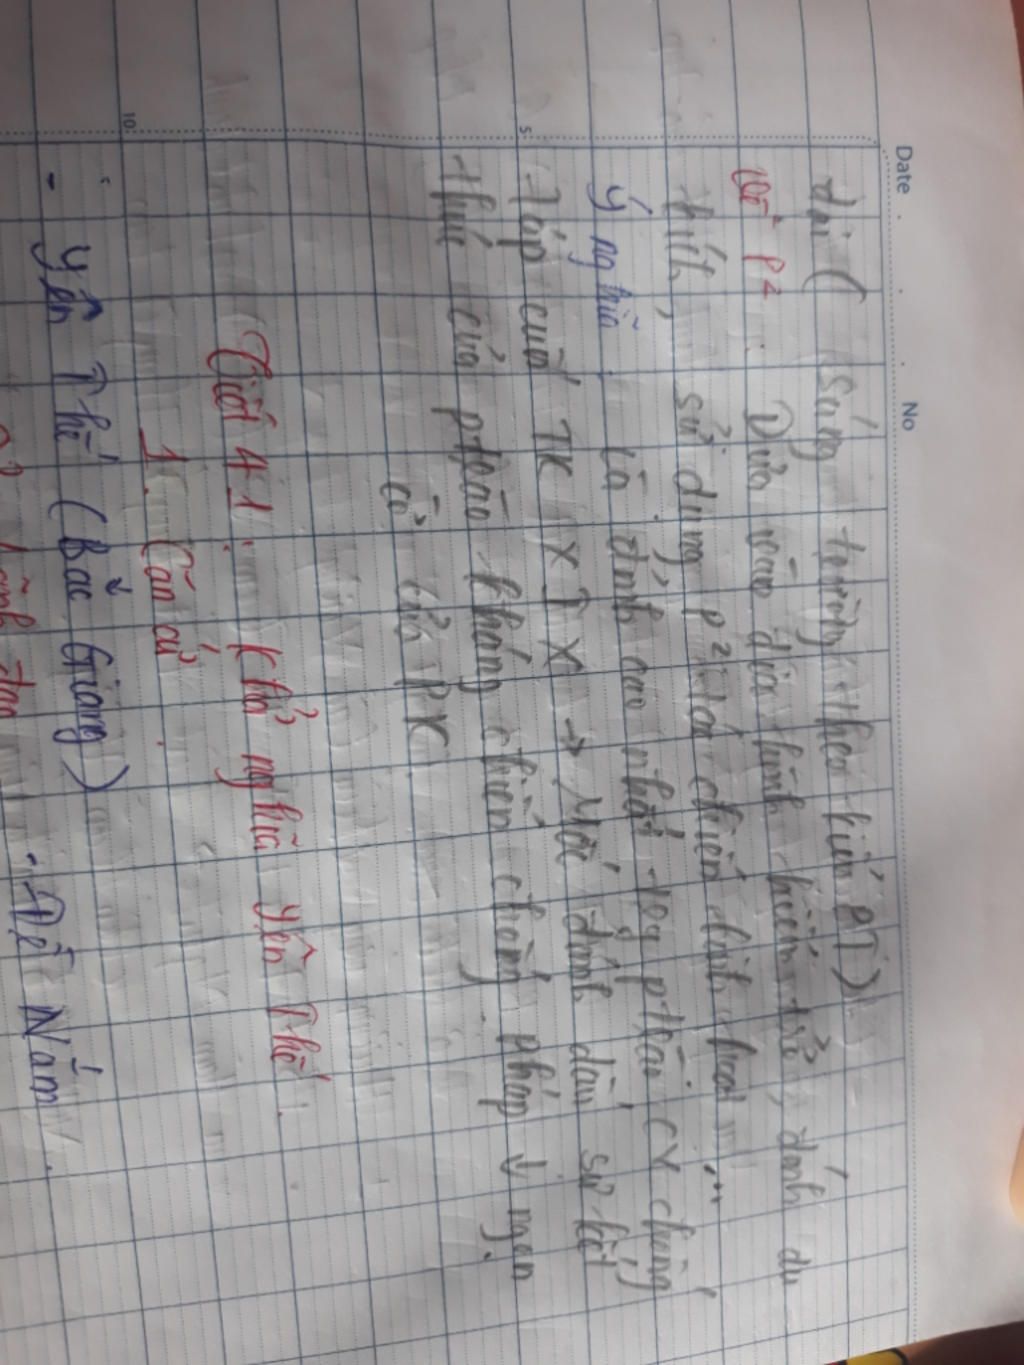 Date No
dài ( sáng trường theo kiểu PT)
Về P²: Dựa vào địa hình hiểm trở, đánh du
kích, sử dụng P² đá chiến linh hoạt ...
Ý nghĩa: Là đỉnh cao nhất trg ptrào CV chống
Pháp cuối TK XIX → Mốc đánh dấu sự kết
thúc của ptrào kháng chiến chống Pháp ↓ ngọn
cờ của PK
Tiết 41: Khở nghĩa Yên Thế
1. Căn cứ
- Yên Thế (Bắc Giang)
- Đề Nắm
5
10